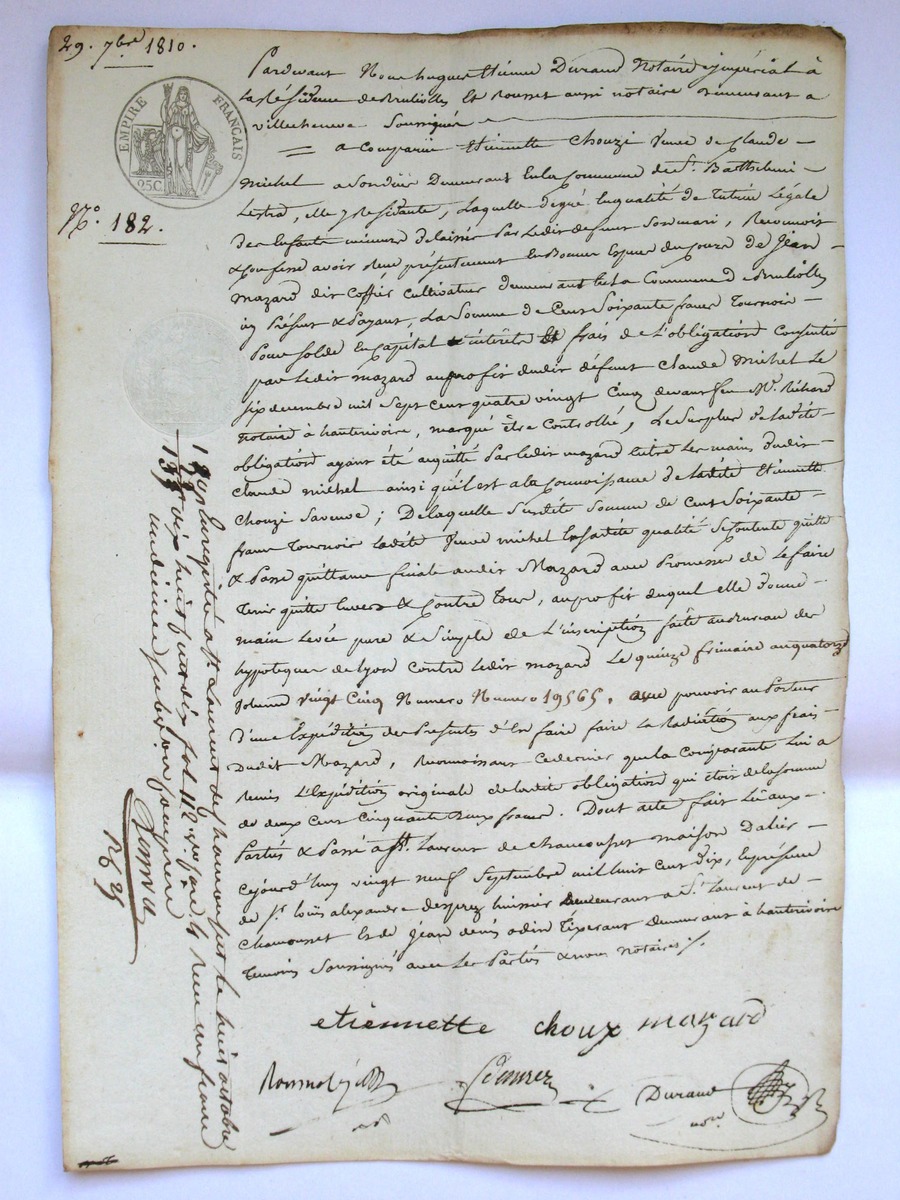 29. 7bre 1810.
EMPIRE FRANÇAIS
25C
N.º 182.
Pardevant Nous hugues Etienne Durand Notaire impérial à
la Résidence de Brulliolles Et Rousset aussi notaire demeurant a
Villecheneve Soussignés
= a Comparüe Etiennette Chouzi veuve de Claude
michel a Son déces Demeurant En la Commune de St. Barthelemi
Lestra, elle y Residante, Laquelle de gré En qualité de tutrice Légale
des Enfants mineurs délaissés Par Ledit défunt Son mari, Reconnoit
& Confesse avoir Reçu présentement En Bonnes Espèces du Cours de Jean
Mazard dit Coffié Cultivateur demeurant En La Commune de Brulliolles
ici Présent & Payant, La Somme de Cent Soixante francs Tournois
Pour Solde En Capital intérêts Et frais de L'obligation Consentie
par Ledit mazard au profit dudit défunt Claude Michel Le
Six decembre mil Sept Cent quatre vingt Cinq devant feu Me. Richard
notaire à hauterivoire, marqué être Controllée, Le Surplus de ladite
obligation ayant été acquitté Par ledit mazard Entre Les mains dudit
Claude michel ainsi qu'il est a la Connoissance de ladite Etiennette
Chouzi Sa veuve; De laquelle Susdite Somme de Cent Soixante
francs Tournois ladite veuve michel En Sadite qualité Se Contente quitte
& Passe quittance finale audit Mazard avec Promesse de Le faire
Tenir quitte Envers & Contre Tous, au profit duquel elle donne
main levée pure & Simple de L'inscription faite au Bureau des
hypoteques de Lyon Contre Ledit mazard Le quinze frimaire an quatorze
Volume vingt Cinq Numero Numero 19565, avec pouvoir au Porteur
D'une Expédition des Presentes d'En faire faire la Radiation aux frais
Dudit Mazard, Reconnoissant Ce dernier que la Comparante Lui a
Remis L'Expédition originale de ladite obligation qui étoit de la Somme
de deux Cent Cinquante deux francs. Dont acte fait Lû aux
Parties & Passé à St. Laurent de Chamousset maison Dalier
Cejourd'huy vingt neuf Septembre mil huit Cent Dix, En présence
de Sr. Loüis alexandre Desprez huissier Demeurant a St. Laurent de
Chamousset Et de Jean denis odin Tixerant demeurant à hauterivoire
Temoins Soussignés avec Les Parties & nous notaires ./.
etiennette choux mazard
Durand
nore
Enregistré a St. Laurent de Chamousset le huit octobre
1810 dix huit cent dix fol. 112 vo. case 4 Reçu un franc
un décime subvention comprise